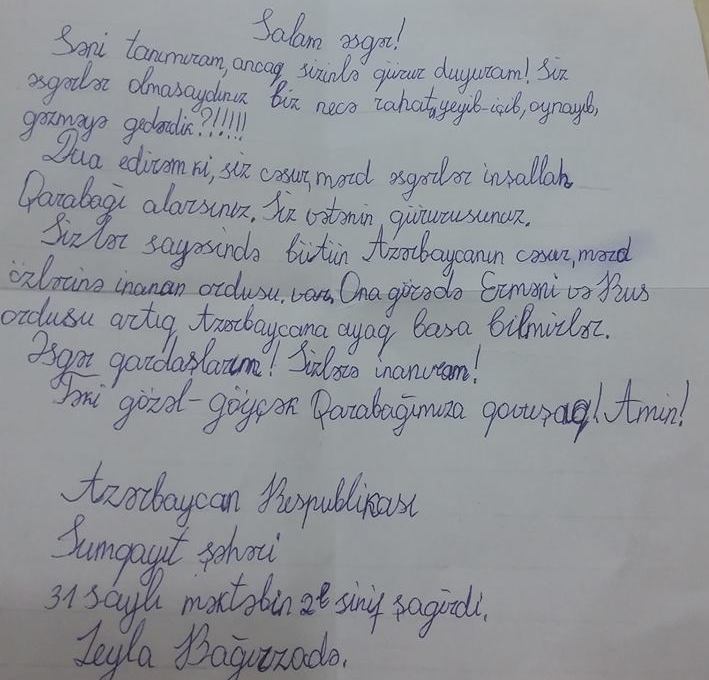 Salam əsgər!
Səni tanımıram, ancaq sizinlə qürur duyuram! Siz
əsgərlər olmasaydınız biz necə rahat, yeyib-içib, oynayıb,
gəzməyə gedərdik?!!!!!
Dua edirəm ki, siz cəsur, mərd əsgərlər inşallah
Qarabağı alarsınız. Siz vətənin qürurusunuz.
Sizlər sayəsində bütün Azərbaycanın cəsur, mərd
özlərinə inanan ordusu var. Ona görədə Erməni və Rus
ordusu artıq Azərbaycana ayaq basa bilmirlər.
Əsgər qardaşlarım! Sizlərə inanıram!
Təki gözəl-göyçək Qarabağımıza qovuşaq! Amin!
Azərbaycan Respublikası
Sumqayıt şəhəri
31 saylı məktəbin 2ᵉ sinif şagirdi.
Leyla Bağırzadə.